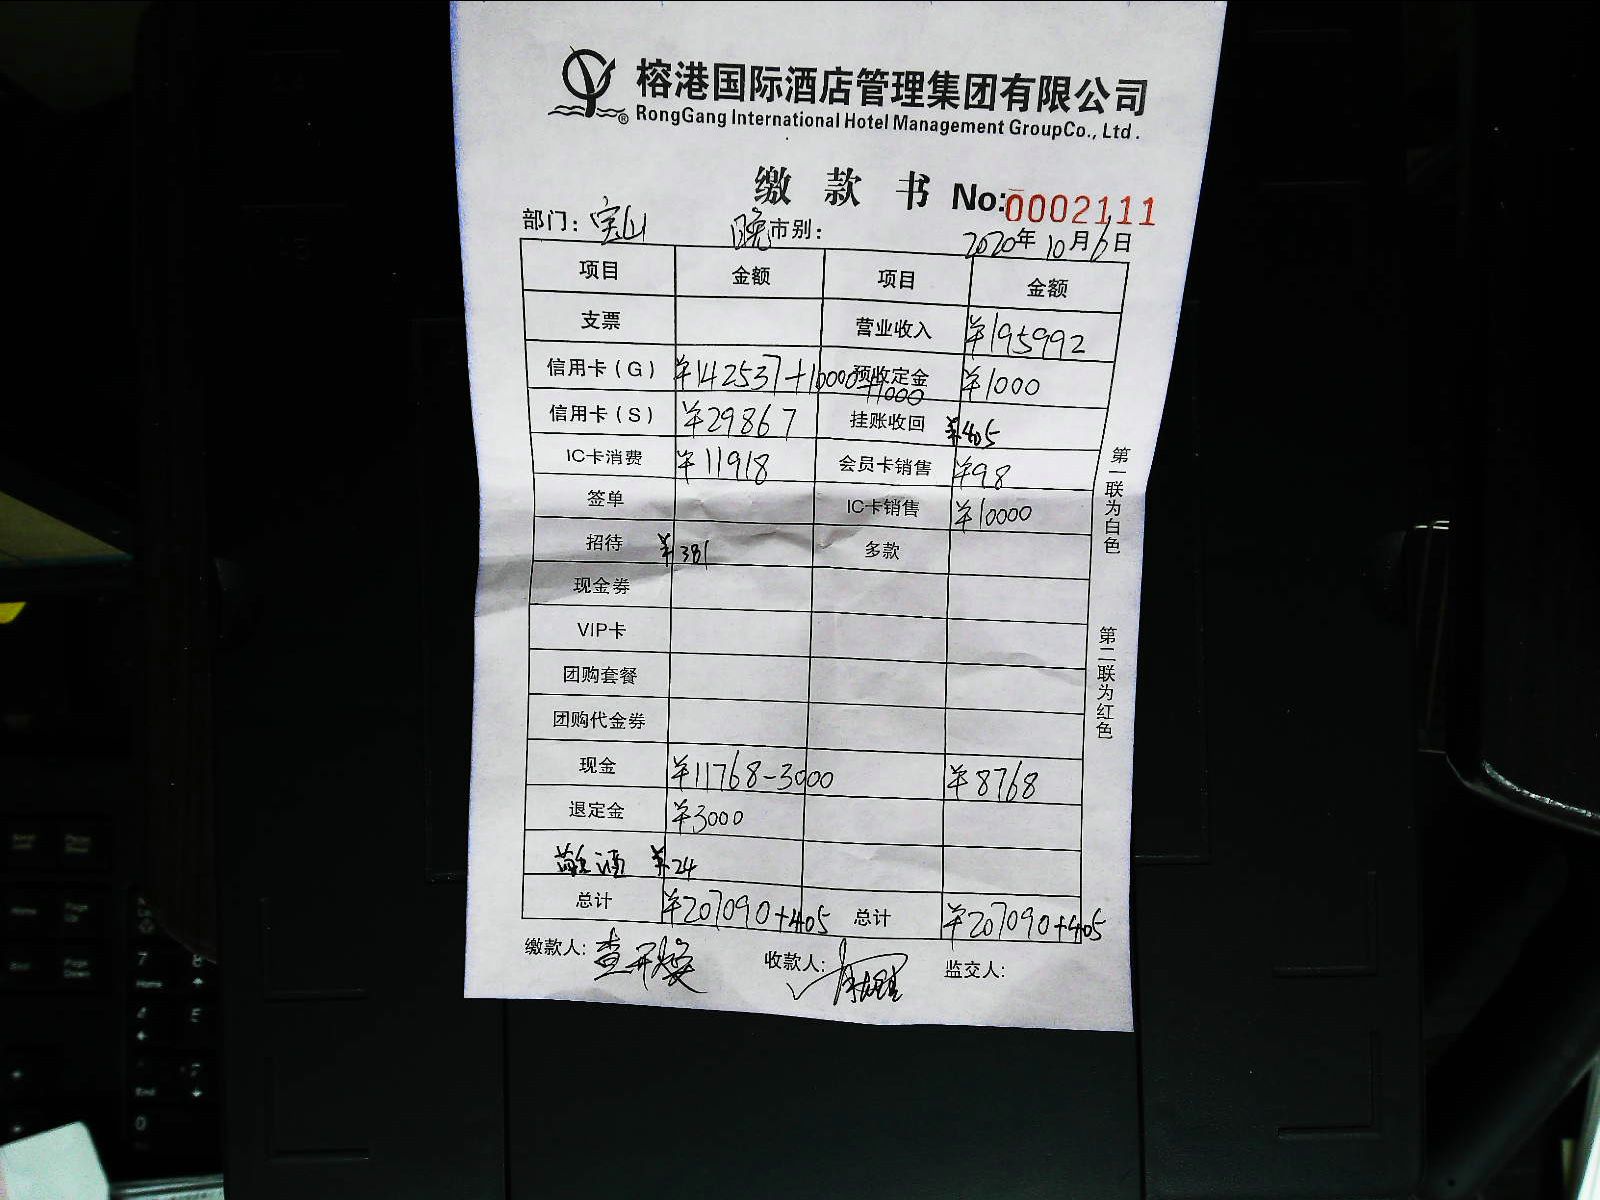 榕港国际酒店管理集团有限公司
RongGang International Hotel Management GroupCo., Ltd.
缴 款 书 No:0002111
部门: 宝山 晚市别: 2020年10月6日
项目 金额 项目 金额
支票 营业收入 ¥195992
信用卡(G) ¥142537+10000+1000 预收定金 ¥1000
信用卡(S) ¥29867 挂账收回 ¥405
IC卡消费 ¥11918 会员卡销售 ¥98
签单 IC卡销售 ¥10000
招待 ¥381 多款
现金券
VIP卡
团购套餐
团购代金券
现金 ¥11768-3000 ¥8768
退定金 ¥3000
酒 ¥24
总计 ¥207090+405 总计 ¥207090+405
缴款人: 收款人: 监交人:
第一联为白色
第二联为红色